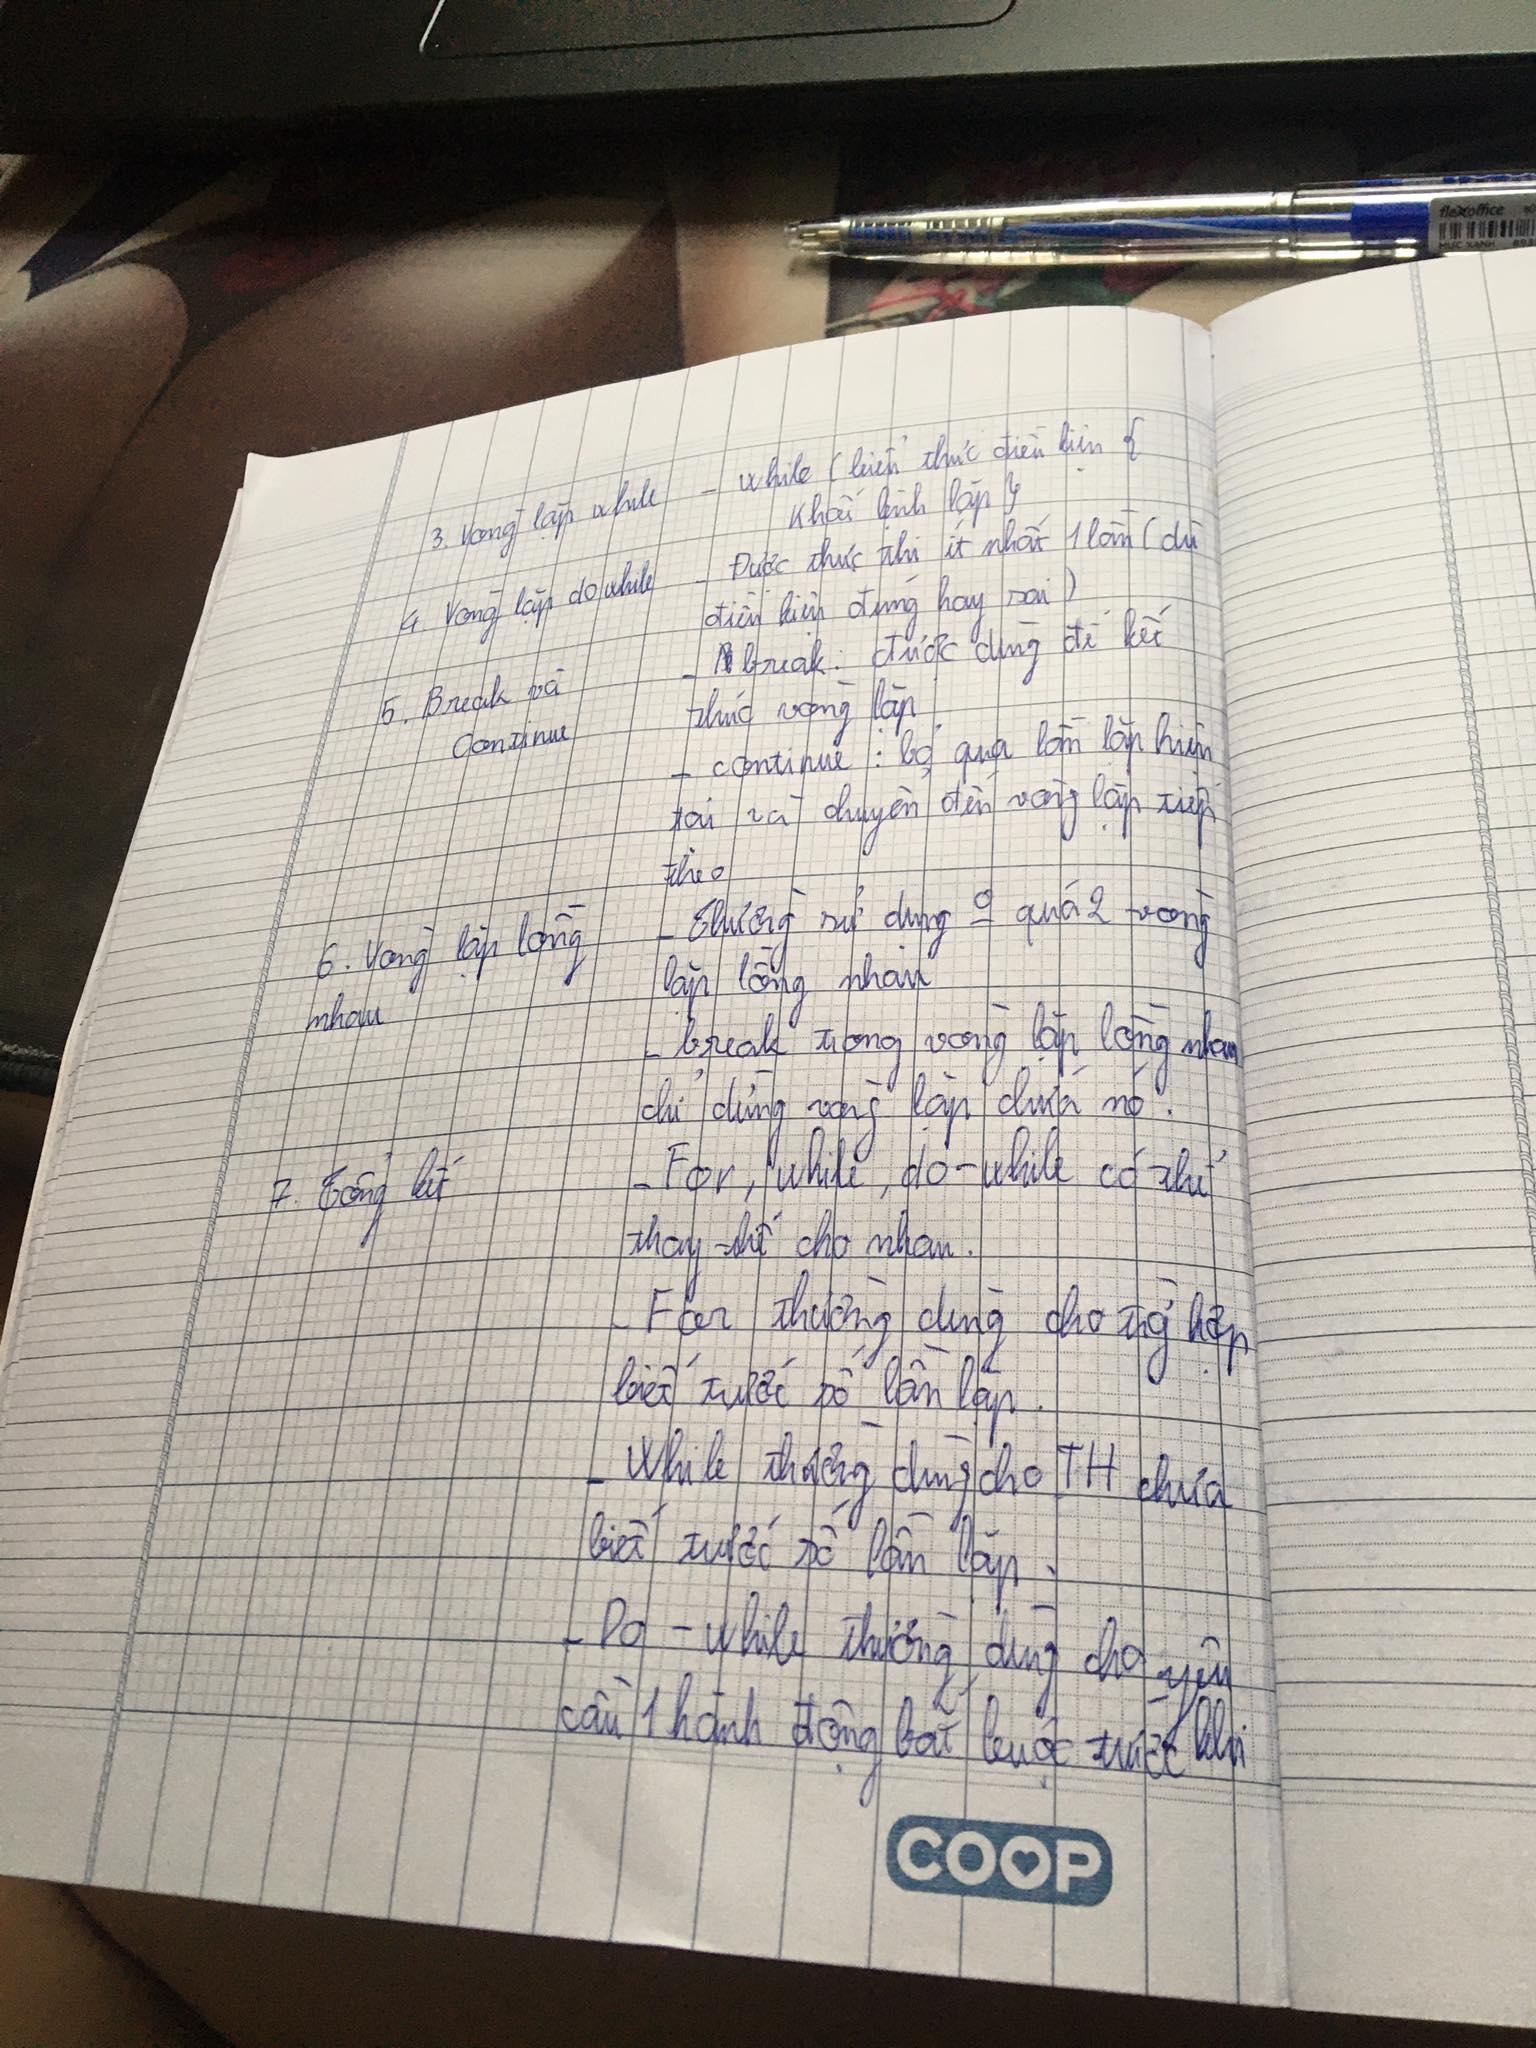 flexoffice
MỰC XANH
3. Vòng lặp while - while (biểu thức điều kiện {
Khối lệnh lặp }
4. Vòng lặp do while - Được thực thi ít nhất 1 lần (dù
điều kiện đúng hay sai)
5. Break và - break: được dùng để kết
continue thúc vòng lặp
- continue: bỏ qua lần lặp hiện
tại và chuyển đến vòng lặp tiếp
theo
6. Vòng lặp lồng - Thường sử dụng quá 2 vòng
nhau lặp lồng nhau
- break trong vòng lặp lồng nhau
chỉ dừng vòng lặp chứa nó.
7. Tổng kết - For, while, do-while có thể
thay thế cho nhau.
- For thường dùng cho trg hợp
biết trước số lần lặp.
- While thường dùng cho TH chưa
biết trước số lần lặp.
- Do - while thường dùng cho yêu
cầu 1 hành động bắt buộc trước khi
COOP